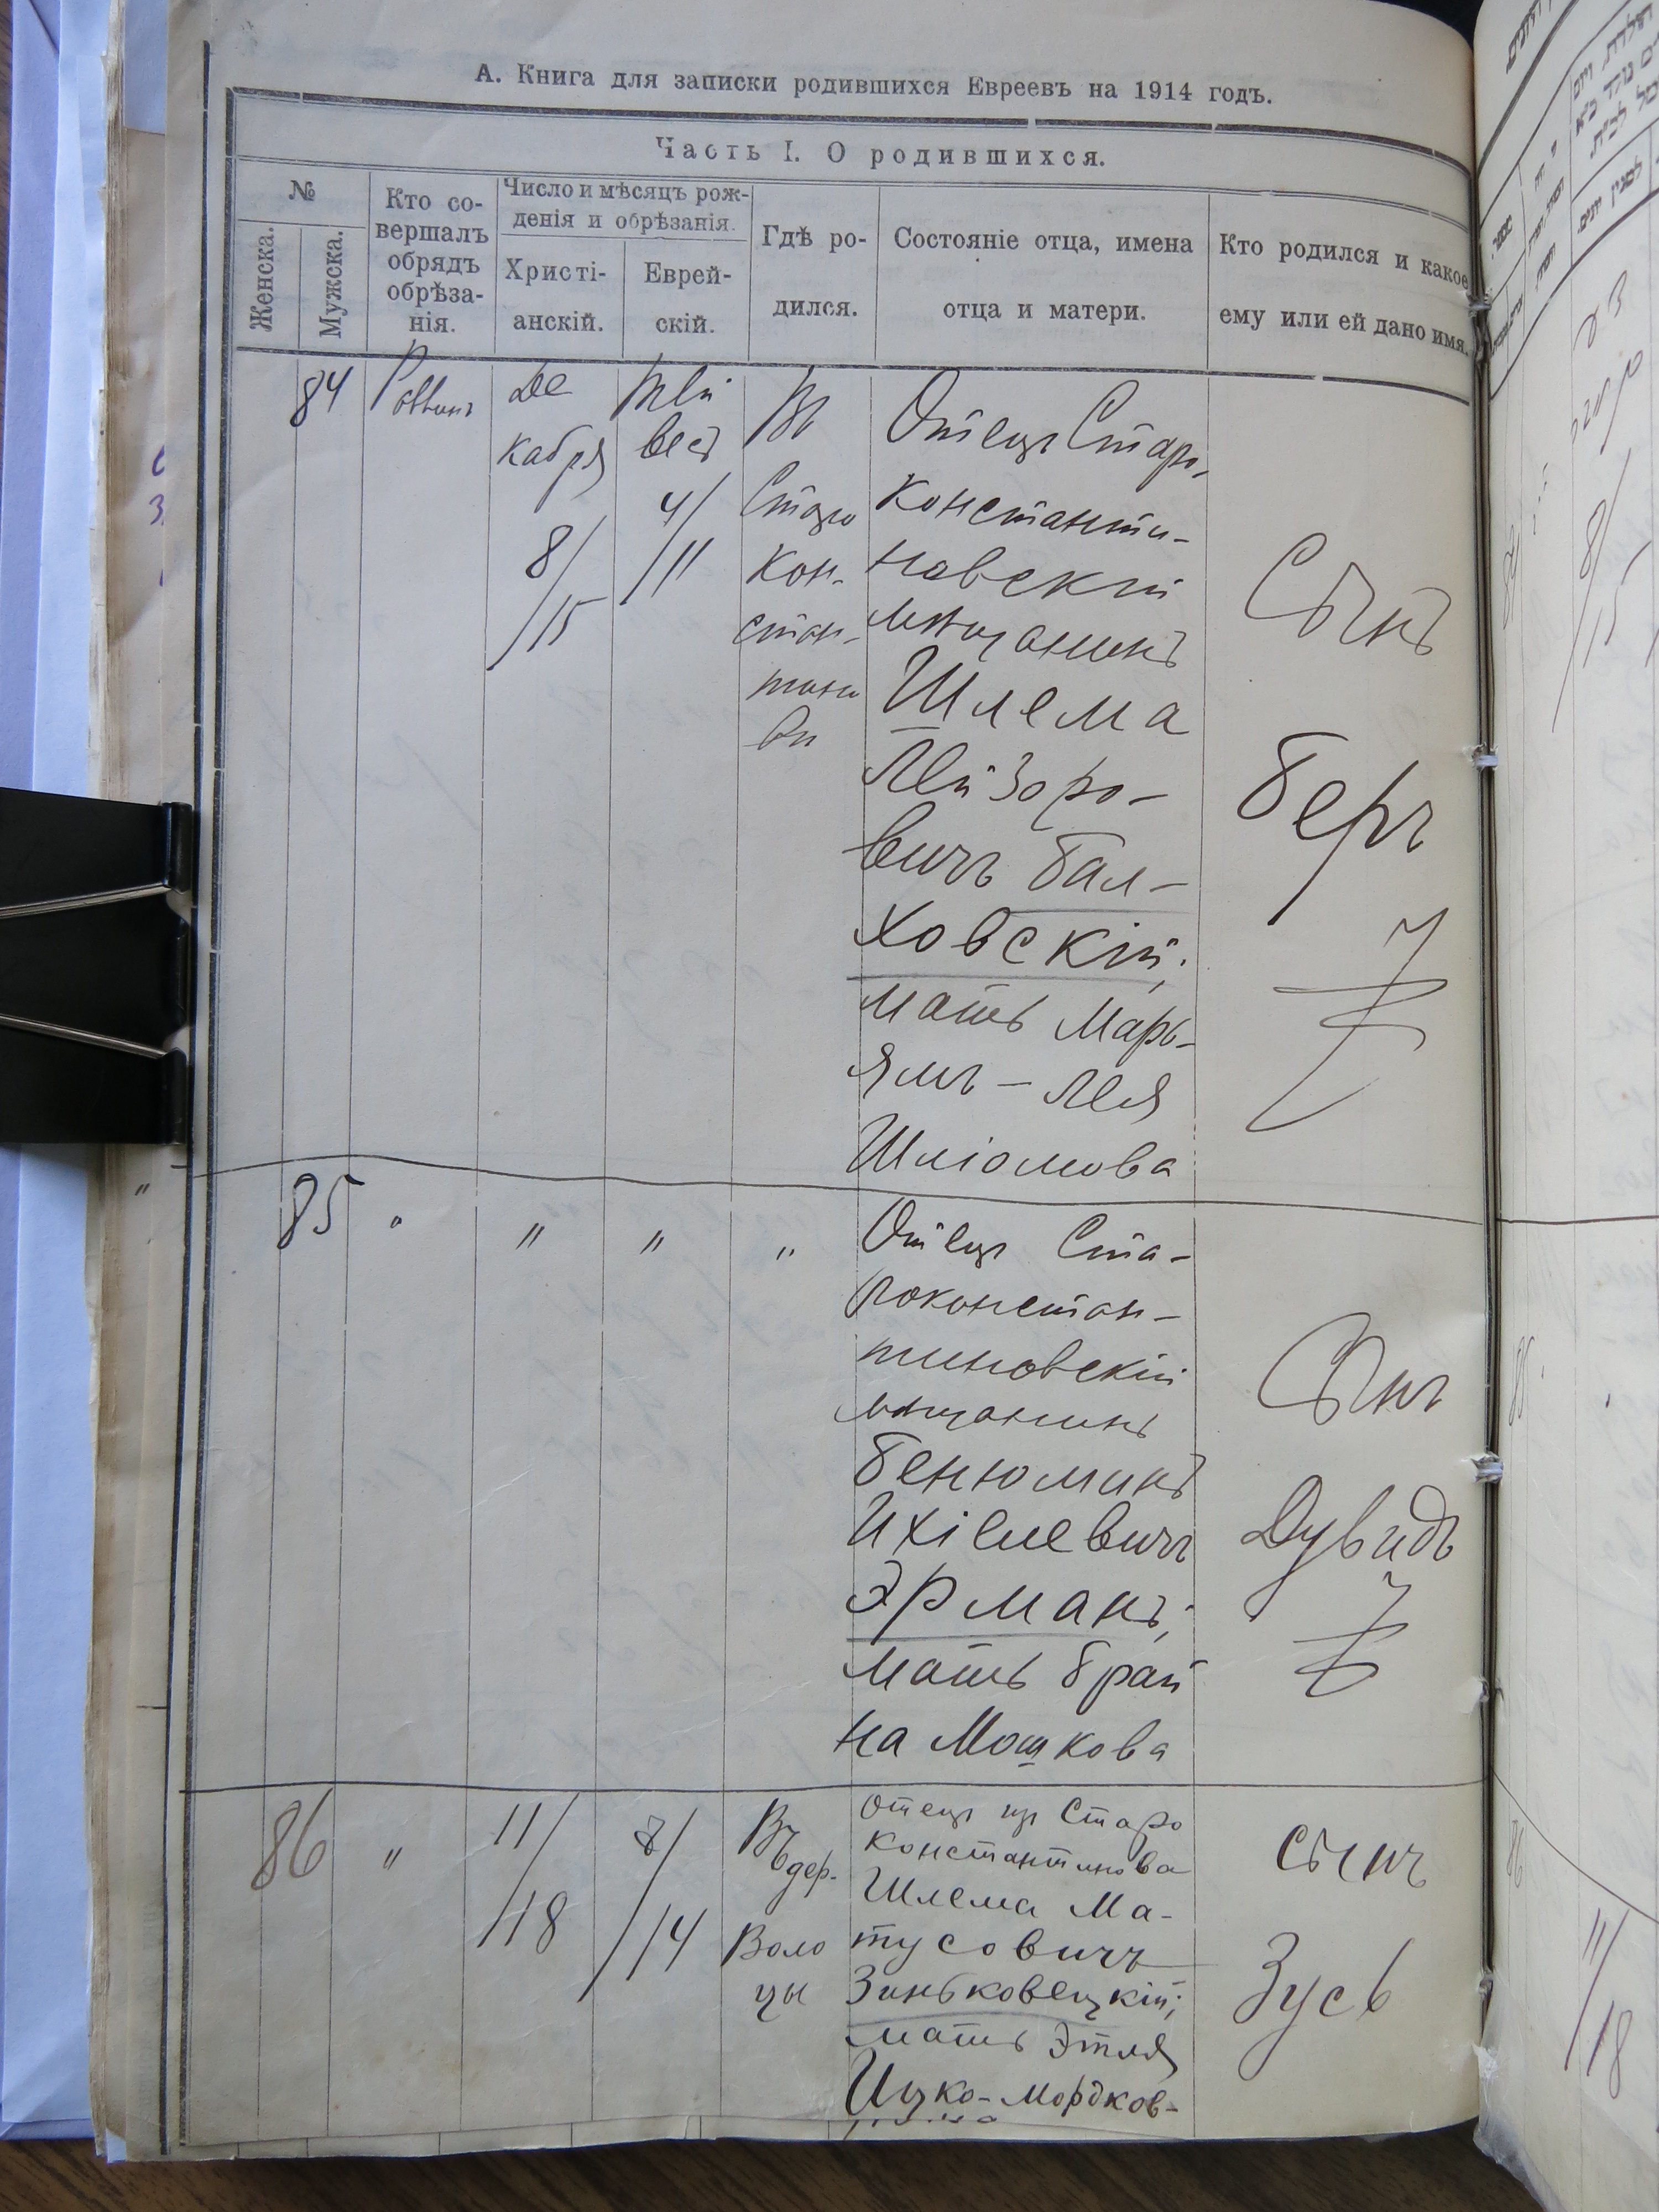 А. Книга для записки родившихся Евреевъ на 1914 годъ.
Часть I. О родившихся.
№
Женска.
Мужска.
Кто со-
вершалъ
обрядъ
обрѣза-
нія.
Число и мѣсяцъ рож-
денія и обрѣзанія.
Христі-
анскій.
Еврей-
скій.
Гдѣ ро-
дился.
Состояніе отца, имена
отца и матери.
Кто родился и какое
ему или ей дано имя.
84
Раввинъ
Де
кабря
8/
/15
Тей
весъ
4/
/11
Въ
Старо
Кон-
стан-
тино
вѣ
Отецъ Старо-
константи-
новскій
мѣщанинъ
Шлема
Лейзоро-
вичъ Бал-
ховскій;
мать Марь-
ямъ - Лея
Шліомова
Сынъ
Беръ
85
"
"
"
"
Отецъ Ста-
роконстан-
тиновскій
мѣщанинъ
Бенюминъ
Ихіелевичъ
Эрманъ;
мать Брай
на Мошкова
Сынъ
Дувидъ
86
"
11/
/18
7/
/14
Въ
дер.
Воло
цы
Отецъ изъ Старо
константинова
Шлема Ма-
тусовичъ
Зиньковецкій;
мать Этля
Ицко-Мордков-
сынъ
Зусь
8/
/15
11/
/18